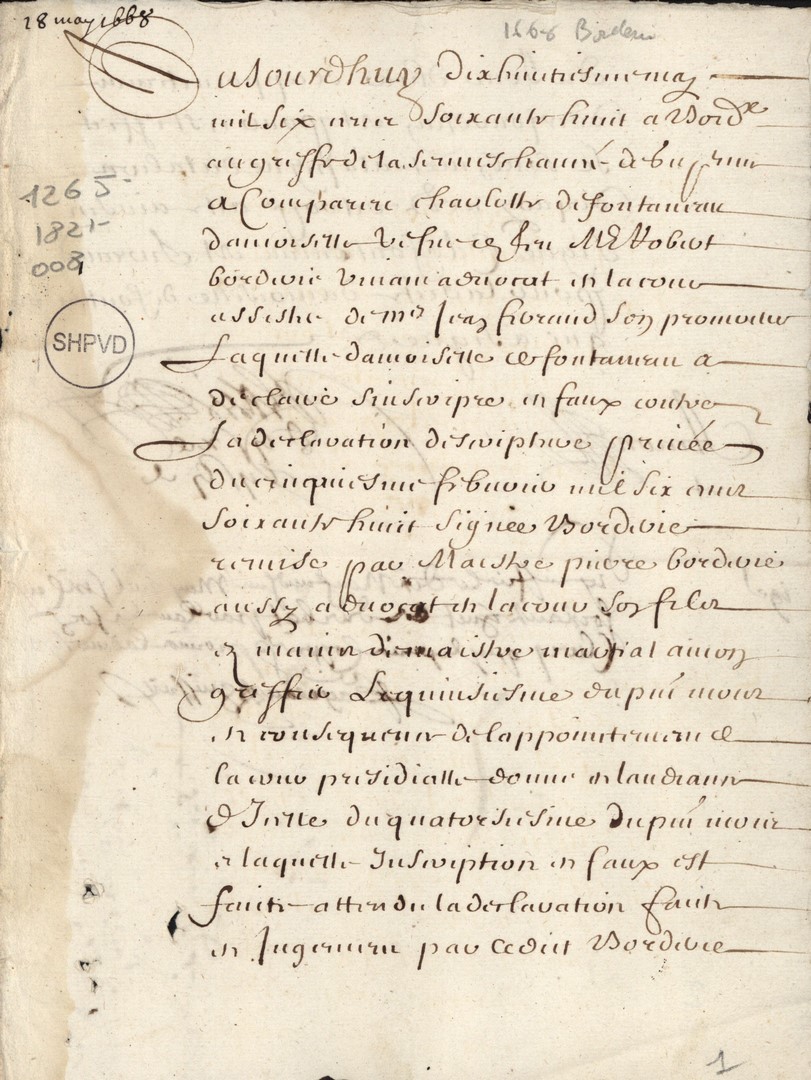 18 may 1668
1668 Borderie
Aujourdhuy dixhuitiesme may
mil six cens soixante huit a Bord.
au greffe de la senneschaucée de Guyenne
a Comparu charlotte de fontaneau
damoiselle vefve de feu Me Robert
borderie vivant advocat en la cour
assistée de me Jean son promoteur
Laquelle damoiselle de fontaneau a
declaré sinscripre en faux contre
La declaration descripture privée
du cinquiesme febvrier mil six cens
soixante huit signée Borderie
remise par Maistre pierre borderie
aussy advocat en la cour son filz
ez mains de maistre martial amon
greffier Le quinsiesme du pnt mois
en consequence de lappointement de
la cour presidialle donné en laudiance
dIcelle du quatorsiesme du pnt mois
& laquelle Inscription en faux est
faicte attendu la declaration faicte
en Jugement par cedict Borderie
1265
1821
008
SHPVD
1